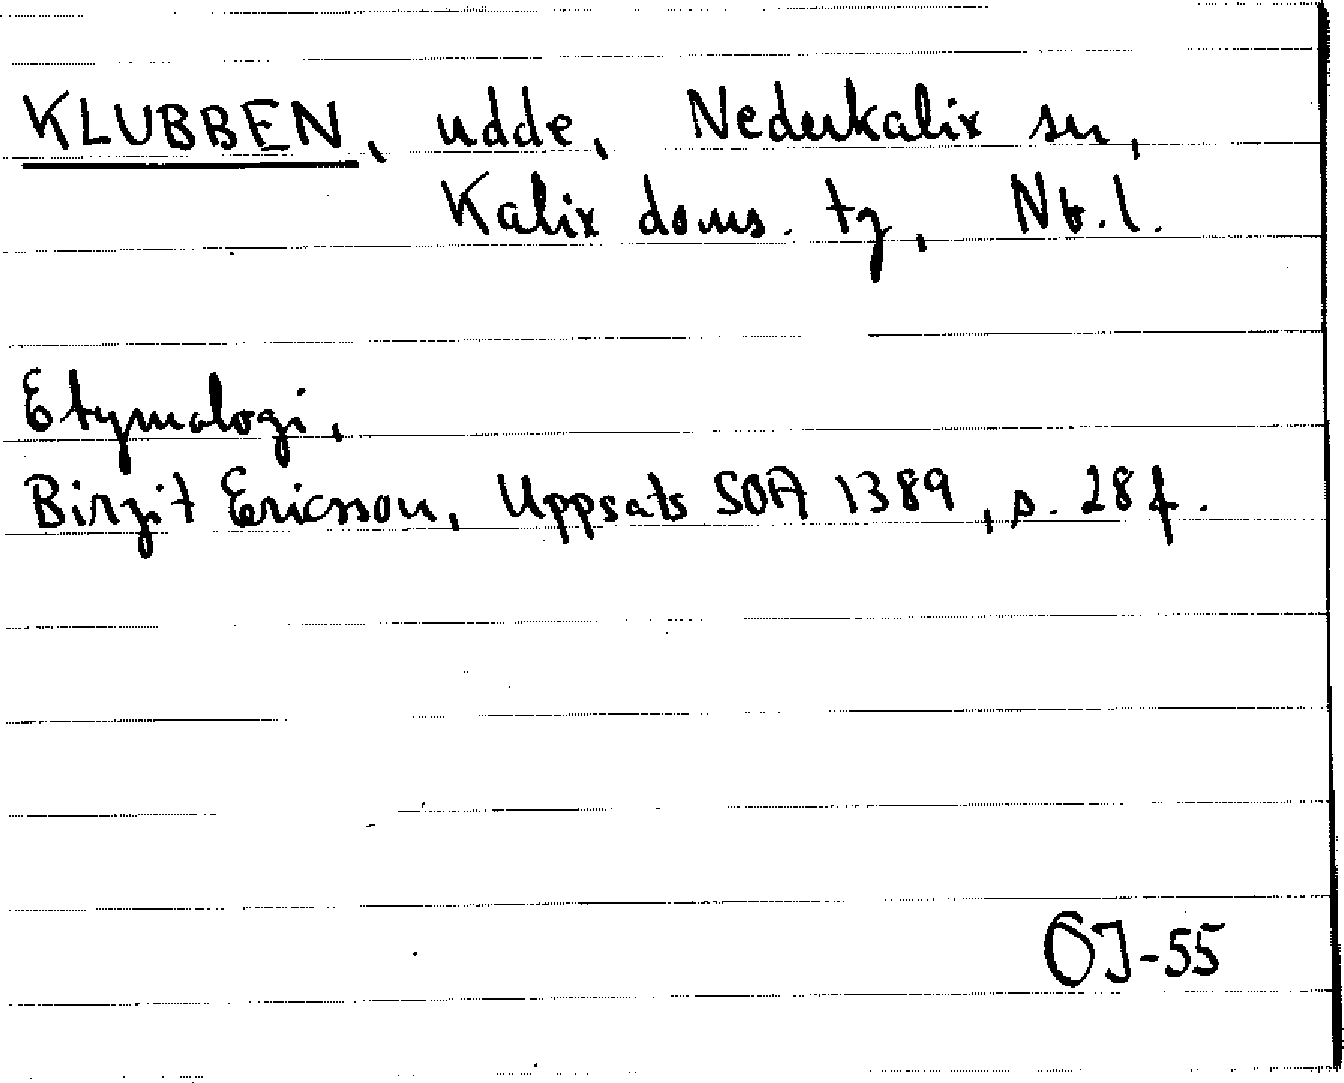 KLUBBEN, udde, Nederkalix sn,
Kalix doms. tg, Nb.l.
Etymologi,
Birgit Ericsson, Uppsats SOA 1389, s. 28 f.
OJ-55